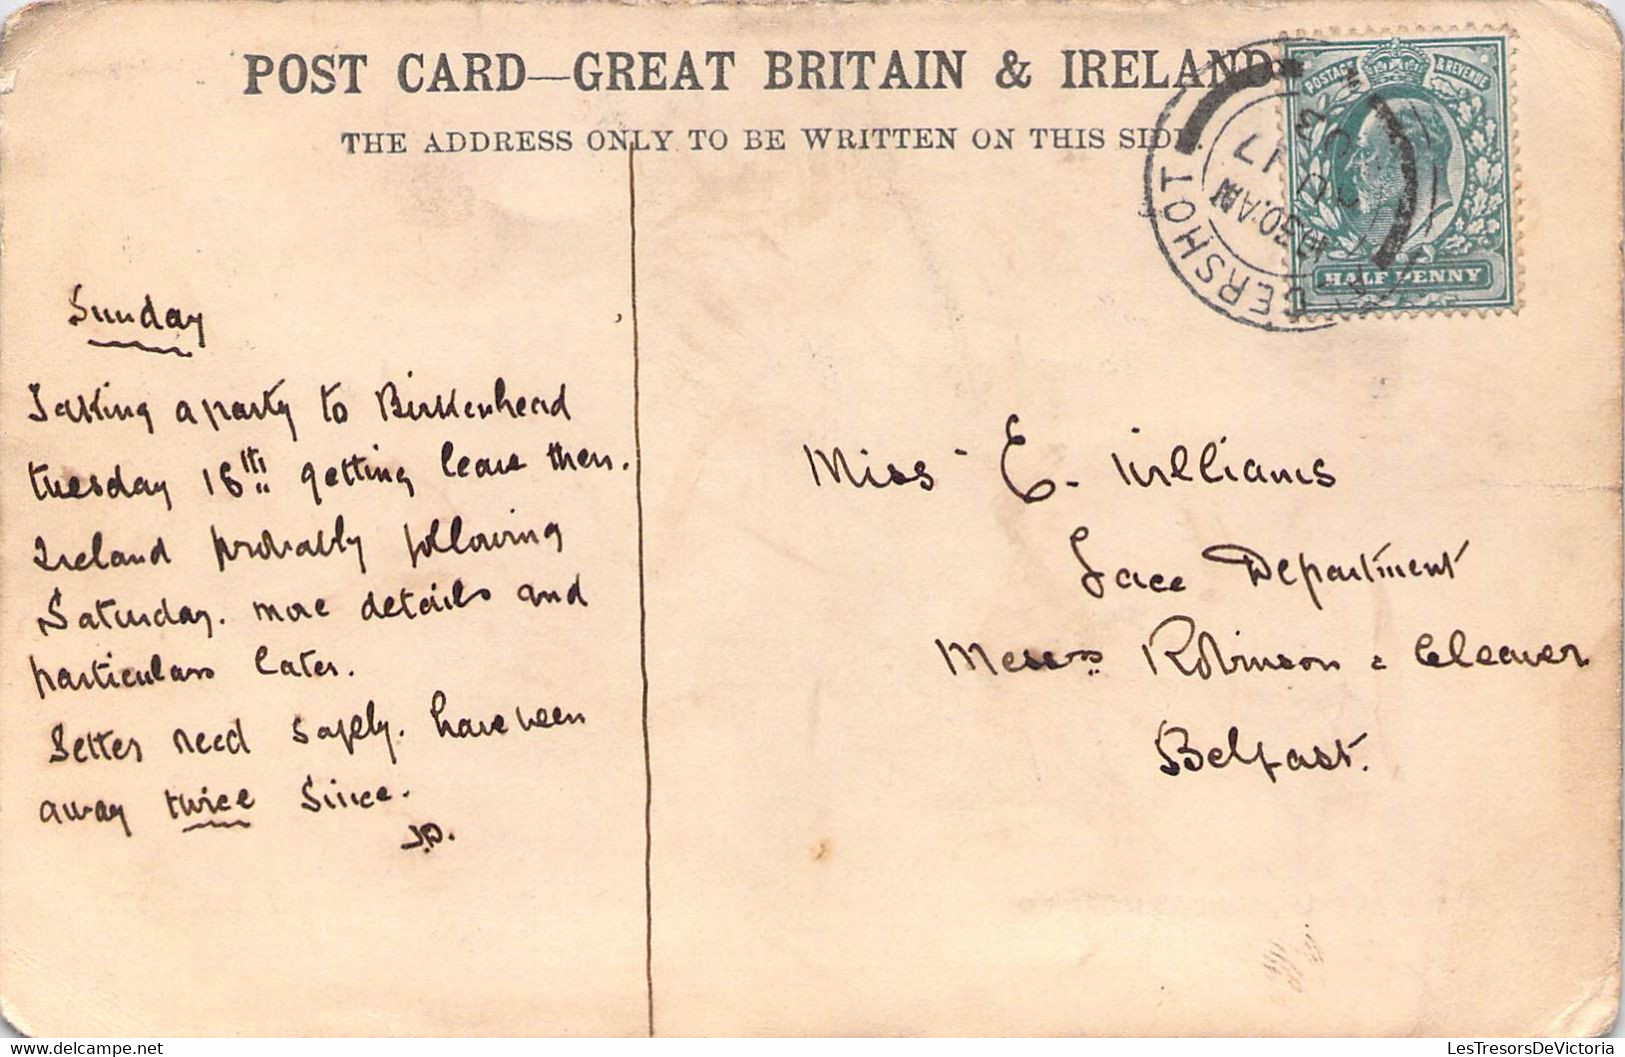 POST CARD—GREAT BRITAIN & IRELAND
THE ADDRESS ONLY TO BE WRITTEN ON THIS SIDE.
POSTAGE & REVENUE
HALF PENNY
ALDERSHOT
10.30 AM
Sunday
Taking a party to Birkenhead
tuesday 16th getting leave then.
Ireland probably following
Saturday. more details and
particulars later.
Letter recd safely. have been
away twice since.
J.P.
Miss E. Williams
Lace Department
Messrs Robinson & Cleaver
Belfast.
LesTresorsDeVictoria